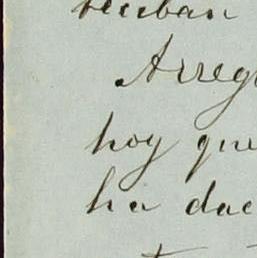 reciban
Arreg
hoy que
ha dac